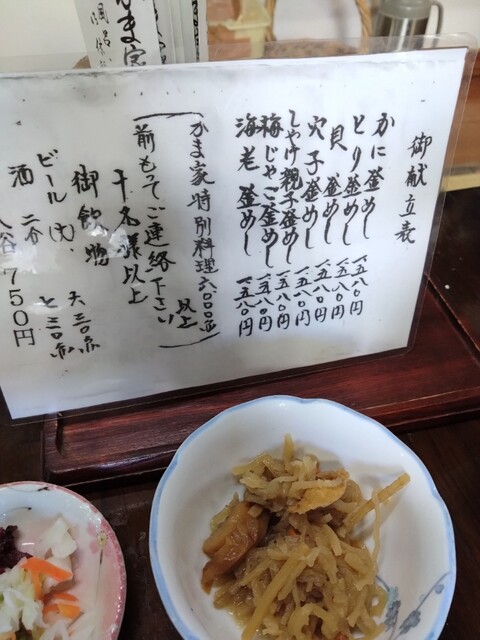 御献立表
かに釜めし 一五八〇円
とり釜めし 一五八〇円
貝釜めし 一五八〇円
穴子釜めし 一五八〇円
しゃけ親子釜めし 一五八〇円
梅じゃこ釜めし 一五八〇円
海老釜めし 一五八〇円
かま家特別料理六〇〇〇
以上
前もってご連絡下さい
十名様以上
御飲物
ビール(大)
酒
750円
かま家